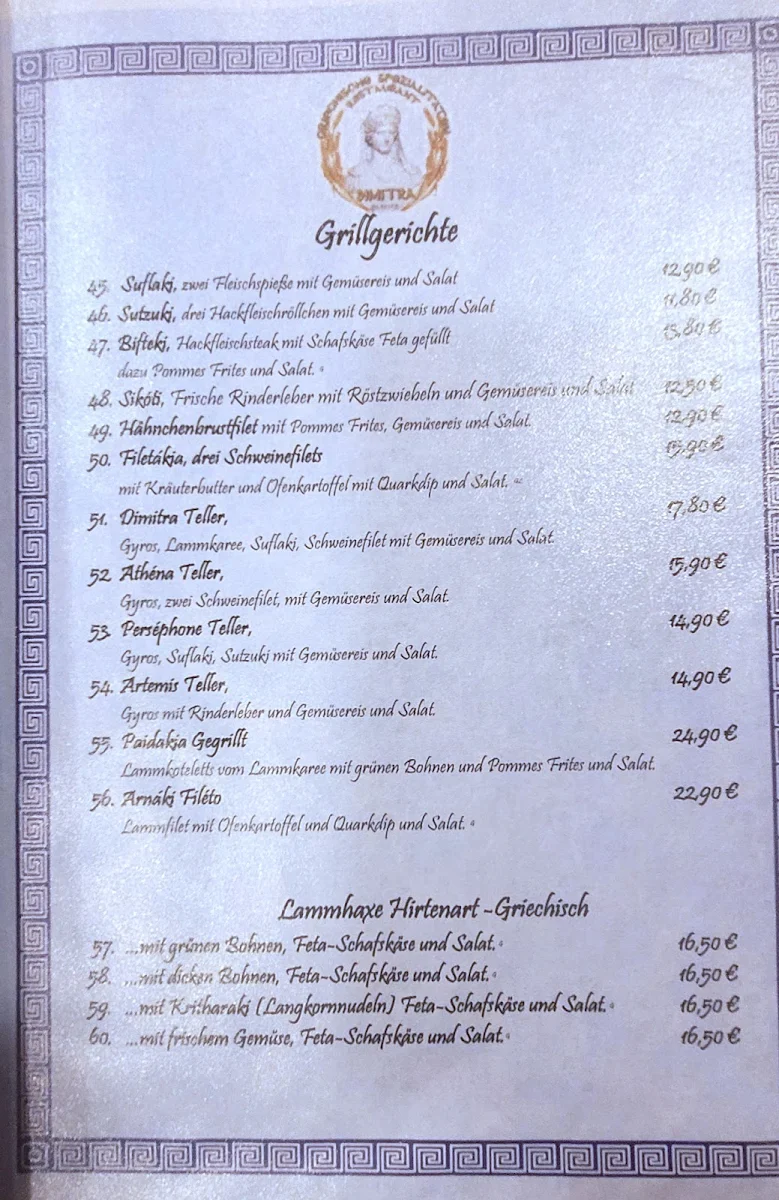 GRIECHISCHE SPEZIALITÄTEN
RESTAURANT
DIMITRA
Grillgerichte
45. Suflaki, zwei Fleischspieße mit Gemüsereis und Salat 12,90 €
46. Sutzuki, drei Hackfleischröllchen mit Gemüsereis und Salat 11,80 €
47. Bifteki, Hackfleischsteak mit Schafskäse Feta gefüllt 13,80 €
dazu Pommes Frites und Salat.
48. Sikóti, Frische Rinderleber mit Röstzwiebeln und Gemüsereis und Salat 12,50 €
49. Hähnchenbrustfilet mit Pommes Frites, Gemüsereis und Salat. 12,90 €
50. Filetákia, drei Schweinefilets 15,90 €
mit Kräuterbutter und Ofenkartoffel mit Quarkdip und Salat.
51. Dimitra Teller, 17,80 €
Gyros, Lammkaree, Suflaki, Schweinefilet mit Gemüsereis und Salat.
52. Athéna Teller, 15,90 €
Gyros, zwei Schweinefilet, mit Gemüsereis und Salat.
53. Perséphone Teller, 14,90 €
Gyros, Suflaki, Sutzuki mit Gemüsereis und Salat.
54. Artemis Teller, 14,90 €
Gyros mit Rinderleber und Gemüsereis und Salat.
55. Paidakia Gegrillt 24,90 €
Lammkoteletts vom Lammkaree mit grünen Bohnen und Pommes Frites und Salat.
56. Arnáki Filéto 22,90 €
Lammfilet mit Ofenkartoffel und Quarkdip und Salat.
Lammhaxe Hirtenart -Griechisch
57. ...mit grünen Bohnen, Feta-Schafskäse und Salat. 16,50 €
58. ...mit dicken Bohnen, Feta-Schafskäse und Salat. 16,50 €
59. ...mit Kritharaki (Langkornnudeln) Feta-Schafskäse und Salat. 16,50 €
60. ...mit frischem Gemüse, Feta-Schafskäse und Salat. 16,50 €